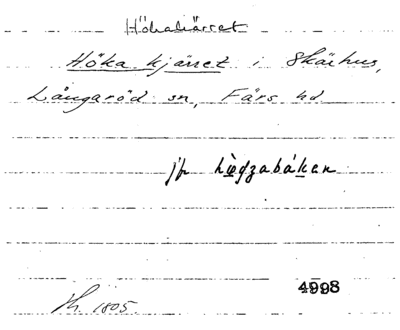 Hökakärret
Höka kjärret i Skärhus,
Långaröd sn, Färs hd
jfr høgzabákan
4998
Th. 1805